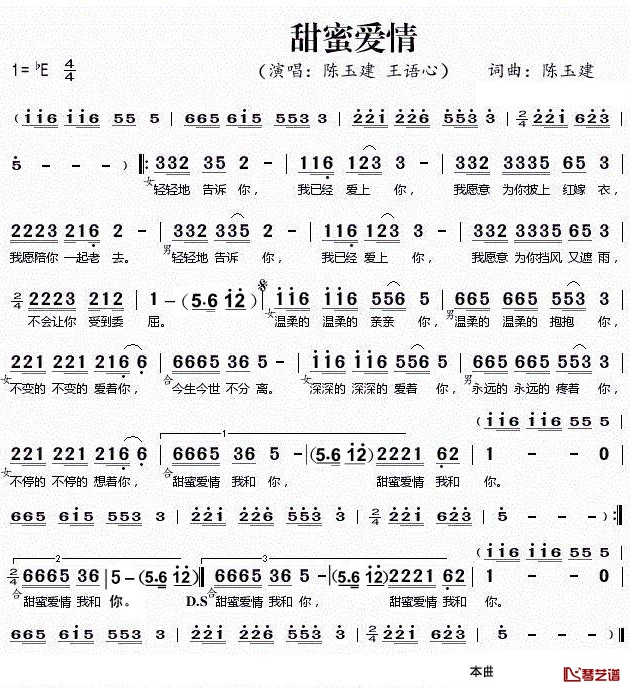 甜蜜爱情
1=♭E 4/4 (演唱：陈玉建 王语心) 词曲：陈玉建
(i i 6 i i 6 55 5 | 665 6i5 553 3 | 22i 226 553 3 | 2/4 22i 623 |
5 - - ) ‖: 332 35 2 - | 116 123 3 | 332 3335 65 3 |
女轻轻地 告诉 你， 我已经 爱上 你， 我愿意 为你披上 红嫁 衣，
2223 216 2 - | 332 335 2 - | 116 123 3 | 332 3335 65 3 |
我愿陪你 一起老 去。 男轻轻地 告诉 你， 我已经 爱上 你， 我愿意 为你挡风 又遮 雨，
2/4 2223 212 | 1 - (5·6 i2) | i i 6 i i 6 556 5 | 665 665 553 3 |
不会让你 受到委 屈。 女温柔的 温柔的 亲亲 你，男温柔的 温柔的 抱抱 你，
221 221 216 6 | 6665 36 5 - | i i 6 i i 6 556 5 | 665 665 553 3 |
女不变的 不变的 爱着你， 合今生今世 不分 离。 女深深的 深深的 爱着 你，男永远的 永远的 疼着 你，
(i i 6 i i 6 55 5 |
1
221 221 216 6 | 6665 36 5 - | (5·6 i2) 2221 62 | 1 - - 0 |
女不停的 不停的 想着你， 合甜蜜爱情 我和 你， 甜蜜爱情 我和 你。
665 6i5 553 3 | 22i 226 553 3 | 2/4 22i 623 | 5 - - ) :‖
2 3 (i i 6 i i 6 55 5 |
2/4 6665 36 | 5 - (5·6 i2) ‖ 6665 36 5 - | (5·6 i2) 2221 62 | 1 - - 0 |
合甜蜜爱情 我和 你。 D.S 合甜蜜爱情 我和 你， 甜蜜爱情 我和 你。
665 6i5 553 3 | 22i 226 553 3 | 2/4 22i 623 | 5 - - ) ‖
本曲 琴艺谱